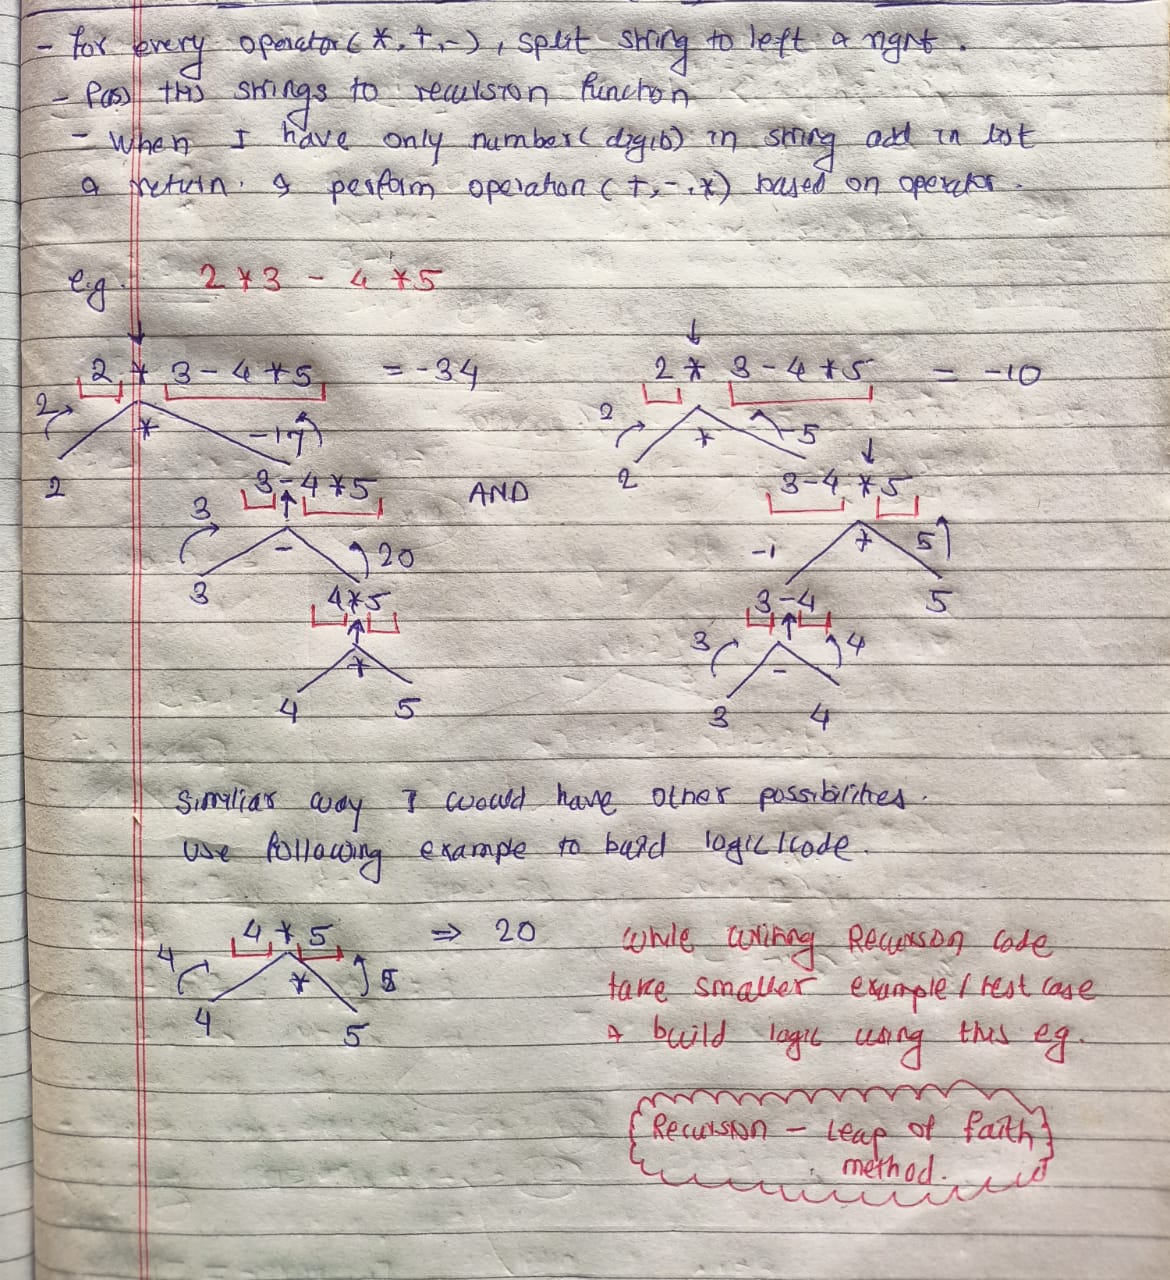 - for every operator (*, +, -), split string to left & right.
- Pass this strings to recursion function
- When I have only number (digits) in string add in list
& return. & perform operation (+, -, *) based on operator.
e.g. 2 * 3 - 4 * 5
2 * 3 - 4 * 5 = -34
2 * -17
2
3 - 4 * 5
3 - 20
3
4 * 5
*
4 5
AND
2 * 3 - 4 * 5 = -10
2 * -5
2
3 - 4 * 5
-1 * 5
3 - 4 5
3 - 4
3 4
Similiar way I would have other possibilities.
Use following example to build logic/code.
4 * 5 => 20
4 * 5
4 5
While writing Recursion code
take smaller example/test case
& build logic using this eg.
Recursion - Leap of faith
method.